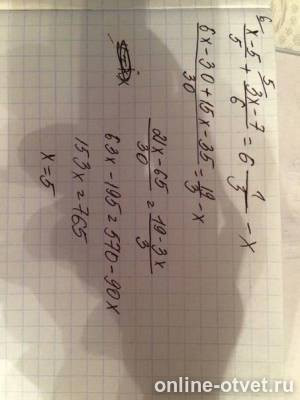 6 (x-5)/5 + 5 (3x-7)/6 = 6 1/3 - x
(6x-30+15x-35)/30 = 19/3 - x
(21x-65)/30 = (19-3x)/3
63x-195=570-90x
153x=765
x=5
online-otvet.ru